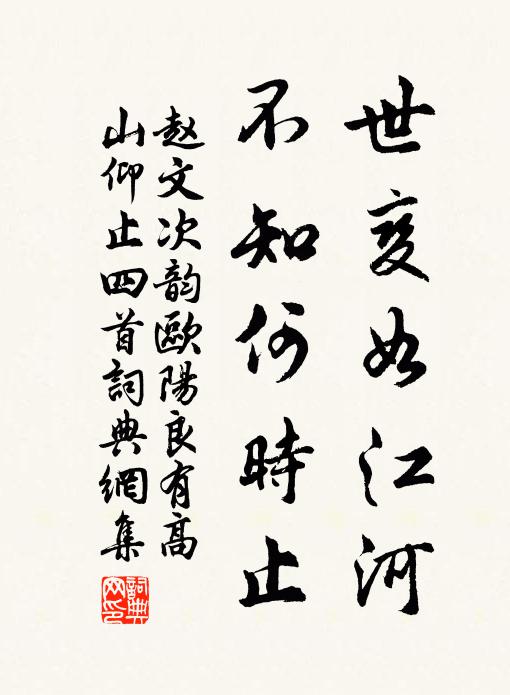 世变如江河
不知何時止
赵文次韵歐陽良有高
山仰止四首詞典網集
詞典网印